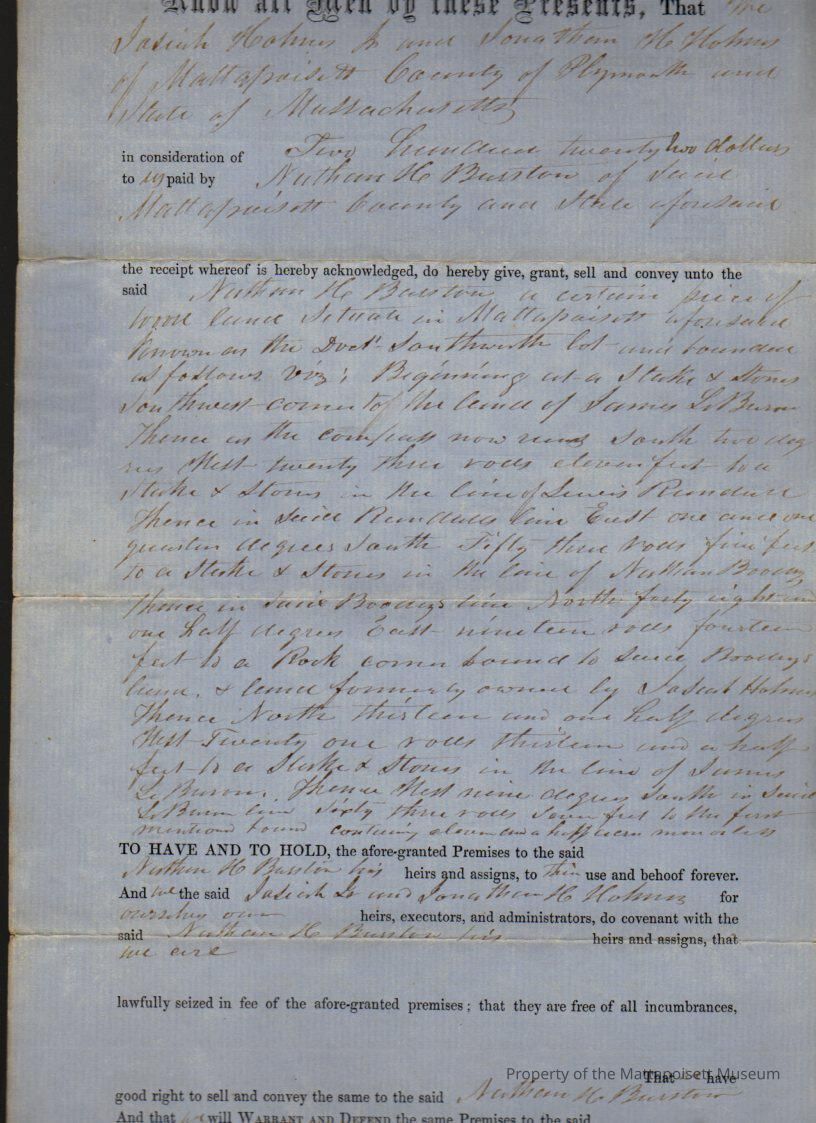 Know all Men by these Presents, That We
Josiah Holmes Jr and Jonathan H Holmes
of Mattapoisett County of Plymouth and
State of Massachusetts
in consideration of Two hundred twenty two dollars
to us paid by Nathan H Barstow of said
Mattapoisett County and State aforesaid
the receipt whereof is hereby acknowledged, do hereby give, grant, sell and convey unto the
said Nathan H Barstow a certain piece of
wood land Situate in Mattapoisett aforesaid
known as the Doct. Southworth lot and bounded
as follows viz; Beginning at a Stake & Stones
Southwest corner of the land of James LeBaron
Thence as the compass now runs South two deg
rees West twenty three rods eleven feet to a
Stake & Stones in the line of Lewis Randall
Thence in said Randalls line East one and one
quarter degrees South Fifty three rods five feet
to a Stake & Stones in the line of Nathan
thence in said line North forty eight and
one half degrees East nineteen rods fourteen
feet to a Rock corner bound to said
land, & land formerly owned by Josiah Holmes
Thence North thirteen and one half degrees
West Twenty one rods thirteen and a half
feet to a Stake & Stones in the line of James
LeBaron, Thence West nine degrees South in said
LeBaron line Sixty three rods Seven feet to the first
mentioned bound containing eleven and a half acres more or less
TO HAVE AND TO HOLD, the afore-granted Premises to the said
Nathan H Barstow his heirs and assigns, to their use and behoof forever.
And we the said Josiah Jr and Jonathan H Holmes for
ourselves our heirs, executors, and administrators, do covenant with the
said Nathan H Barstow his heirs and assigns, that
we are
lawfully seized in fee of the afore-granted premises; that they are free of all incumbrances,
That have
Property of the Mattapoisett Museum
good right to sell and convey the same to the said Nathan H Barstow
And that we will WARRANT AND DEFEND the same Premises to the said